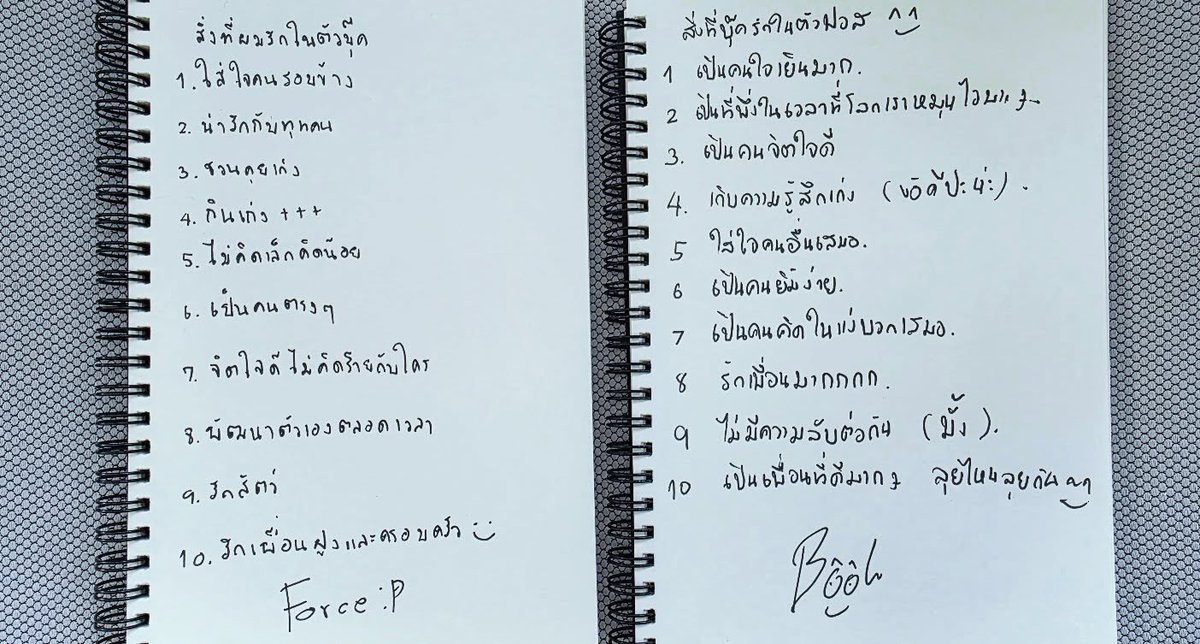 สิ่งที่ผมรักในตัวบุ๊ค
1. ใส่ใจคนรอบข้าง
2. น่ารักกับทุกคน
3. ชวนคุยเก่ง
4. กินเก่ง +++
5. ไม่คิดเล็กคิดน้อย
6. เป็นคนตรงๆ
7. จิตใจดี ไม่คิดร้ายกับใคร
8. พัฒนาตัวเองตลอดเวลา
9. รักสัตว์
10. รักเพื่อนฝูงและครอบครัว
Force :P
สิ่งที่บุ๊ครักในตัวฟอส ^^
1 เป็นคนใจเย็นมาก.
2 เป็นที่พึ่งในเวลาที่โลกเราหมุนไวมากๆ
3. เป็นคนจิตใจดี
4. เก็บความรู้สึกเก่ง (ข้อดีปะน่ะ).
5 ใส่ใจคนอื่นเสมอ.
6 เป็นคนยิ้มง่าย.
7 เป็นคนคิดในแง่บวกเสมอ.
8 รักเพื่อนมากกกก.
9 ไม่มีความลับต่อกัน (มั้ง).
10 เป็นเพื่อนที่ดีมากๆ ลุยไหนลุยกัน ^^